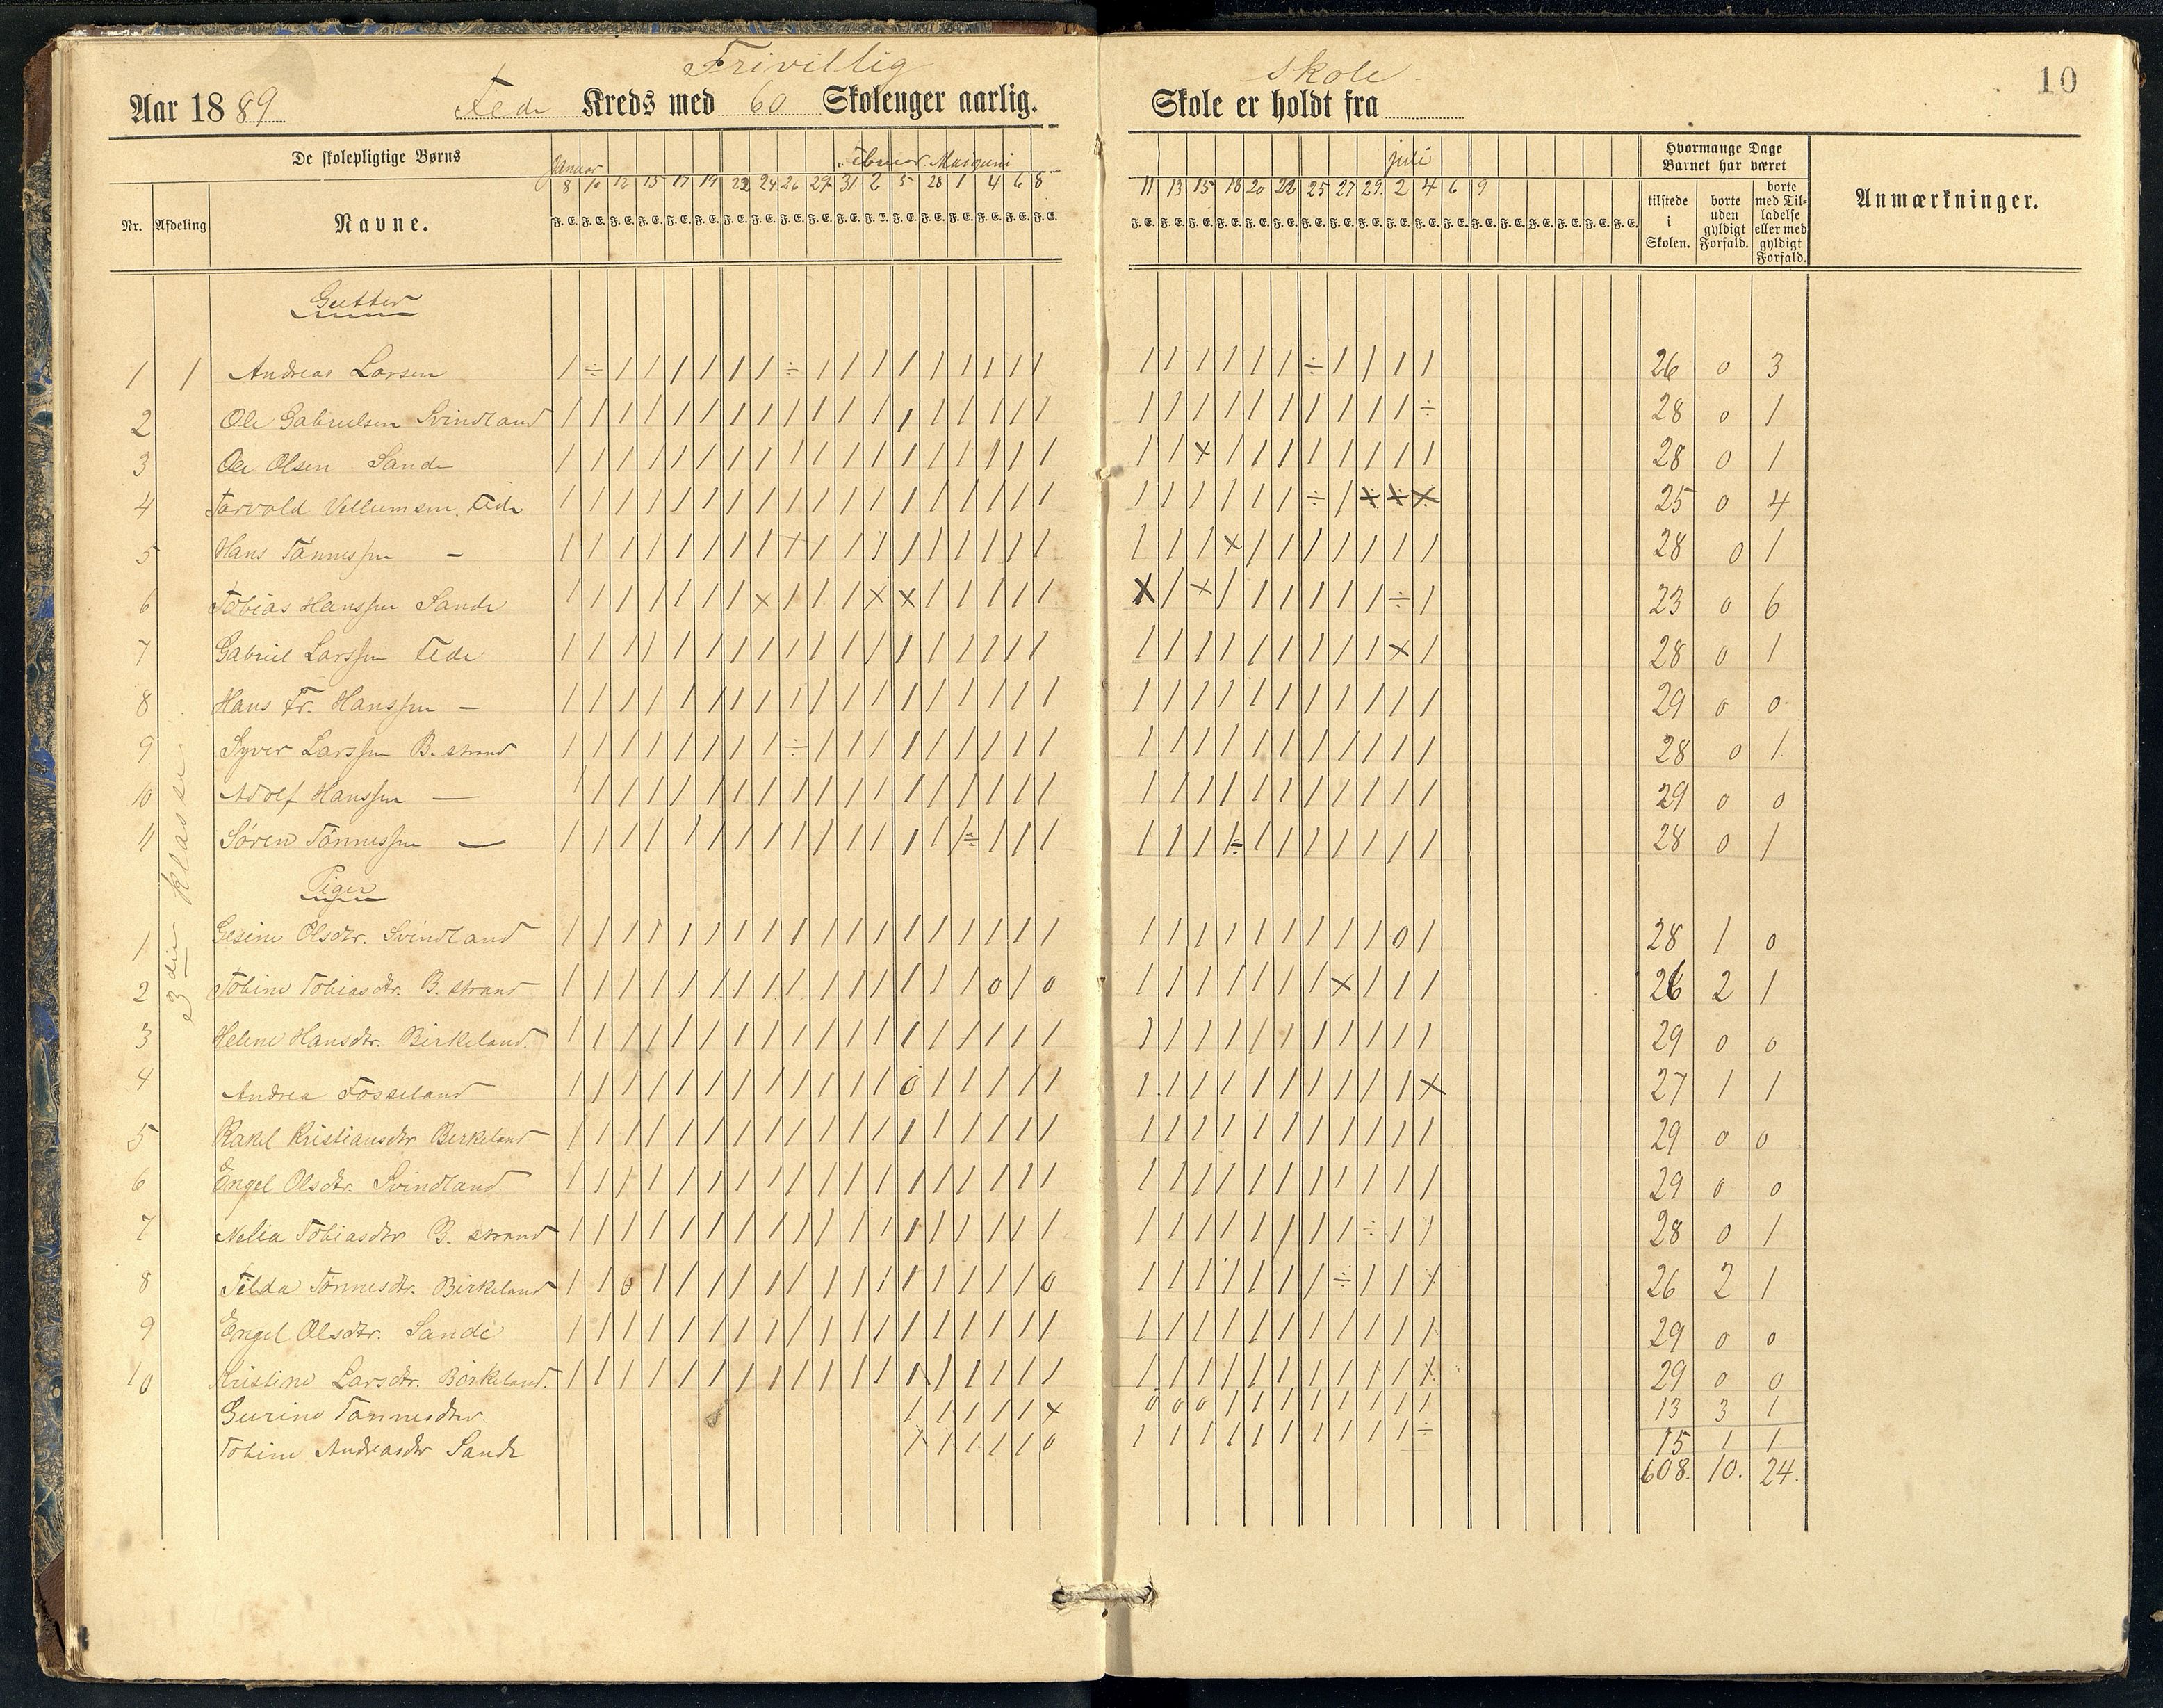 Frivillig skole
10
Aar 1889 Fede Kreds med 60 Skoleuger aarlig. Skole er holdt fra
De skolepligtige Børns
Januar juni juli
Hvormange Dage Barnet har været
Nr. Afdeling Navne.
8 10 12 15 17 19 22 24 26 29 31 2 5 28 1 4 6 8 11 13 15 18 20 22 25 27 29 2 4 6 9
F. E. F. E. F. E. F. E. F. E. F. E. F. E. F. E. F. E. F. E. F. E. F. E. F. E. F. E. F. E. F. E. F. E. F. E.
F. E. F. E. F. E. F. E. F. E. F. E. F. E. F. E. F. E. F. E. F. E. F. E. F. E. F. E. F. E. F. E. F. E. F. E.
tilstede i Skolen.
borte uden gyldigt Forfald.
borte med Tilladelse eller med gyldigt Forfald.
Anmærkninger.
Gutter
1 1 Andreas Larsen 26 0 3
2 Ole Gabrielsen Svindland 28 0 1
3 Ole Olsen Sande 28 0 1
4 Tarvald Vellumsen Fede 25 0 4
5 Hans Tønnessen — 28 0 1
6 Tobias Hanssen Sande 23 0 6
7 Gabriel Larssen Fede 28 0 1
8 Hans Fr. Hanssen — 29 0 0
9 Syver Larssen B. strand 28 0 1
10 Adolf Hanssen — 29 0 0
11 Søren Tønnessen — 28 0 1
3die klasse
Piger
1 Gesine Olsdtr. Svindland 28 1 0
2 Tobine Tobiasdtr. B. strand 26 2 1
3 Helene Hansdtr. Birkeland. 29 0 0
4 Andrea Fosseland 27 1 1
5 Rakel Kristiansdtr Berkeland 29 0 0
6 Engel Olsdtr. Svindland 29 0 0
7 Nelia Tobiasdtr B. strand 28 0 1
8 Tilda Tønnesdtr. Birkeland 26 2 1
9 Engel Olsdtr. Sande 29 0 0
10 Kristine Larsdtr. Birkeland. 29 0 0
Gurine Tønnesdtr. 13 3 1
Tobine Andreasdtr Sande 15 1 1
608. 10. 24.